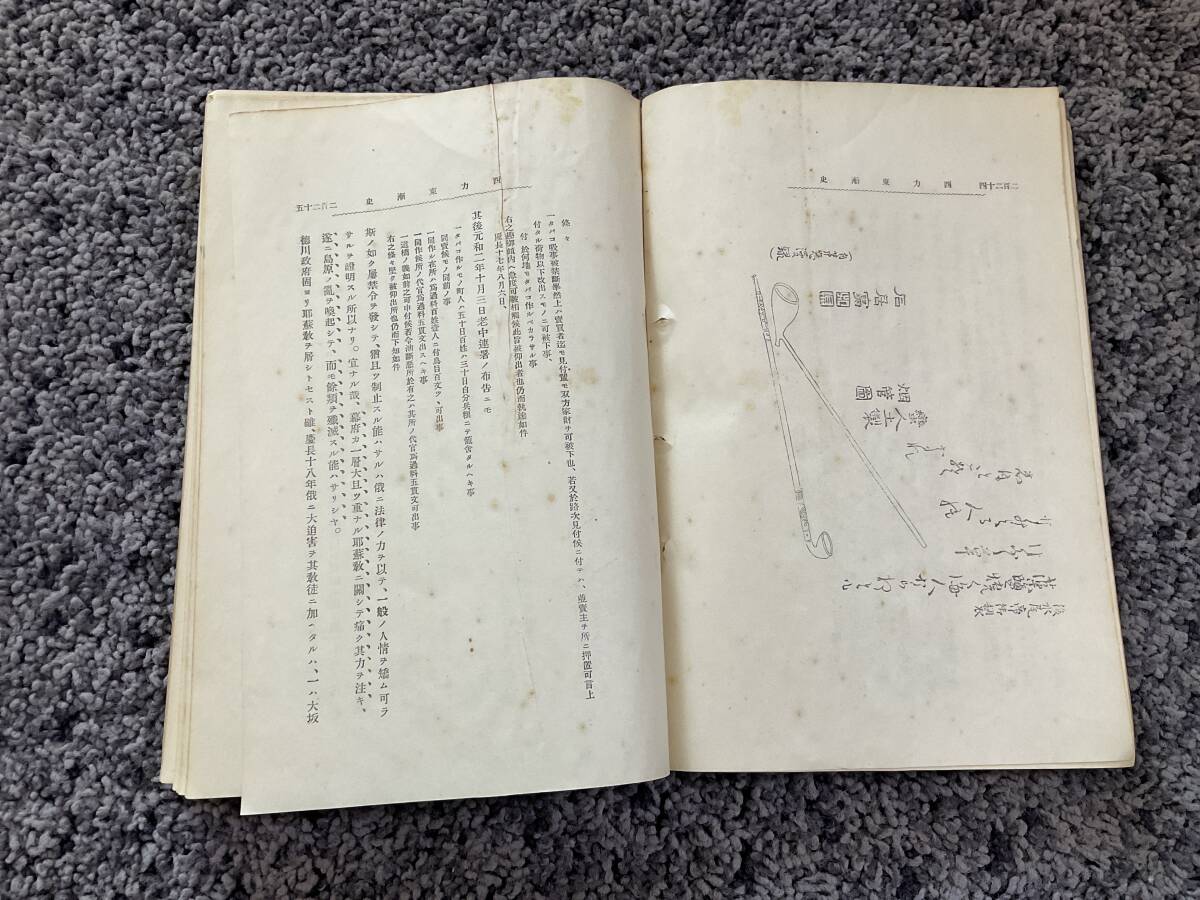 二百二十四 西力東漸史
後水尾帝御製
烟管圖
蠻人土製
西力東漸史 二百二十五
條々
一タバコ吸事被禁斷畢然上ハ賣買者迄モ見付輩モ双方家財ヲ可被下也、若又於路次見付候ニ付テハ、並賣主ヲ所ニ押置可言上
付タル荷物以下改出スモノニ可被下事、
付 於何地モタバコ作ルベカラサル事
右之趣御領內ヘ急度可被相觸候此旨被仰出者也仍而執達如件
慶長十七年八月六日、
其後元和二年十月三日老中連署ノ布告ニモ
一タバコ作ルモノ町人ハ五十日百姓ハ三十日自分兵粮ニテ籠舍タルヘキ事
同賣候モノ同前ノ事
一同作ル在所ハ爲過料百姓壹人ニ付鳥目百文ツヽ可出事
一同作候所ノ代官爲過料五貫文出スヘキ事
右之條々堅ク被仰出所也仍而下知如件
斯ノ如ク屢禁令ヲ發シテ、猶且ツ制止スル能ハサルハ俄ニ法律ノ力ヲ以テ、一般ノ人情ヲ矯ム可ラ
サルヲ證明スル所以ナリ。宜ナル哉、幕府カ一層大且ツ重ナル耶蘇敎ニ關シテ痛ク其力ヲ注キ、
遂ニ島原ノ亂ヲ喚起シテ、而モ餘類ヲ殲滅スル能ハサリシヤ。
德川政府固ヨリ耶蘇敎ヲ屑シトセスト雖、慶長十八年俄ニ大迫害ヲ其敎徒ニ加ヘタルハ、一ハ大坂